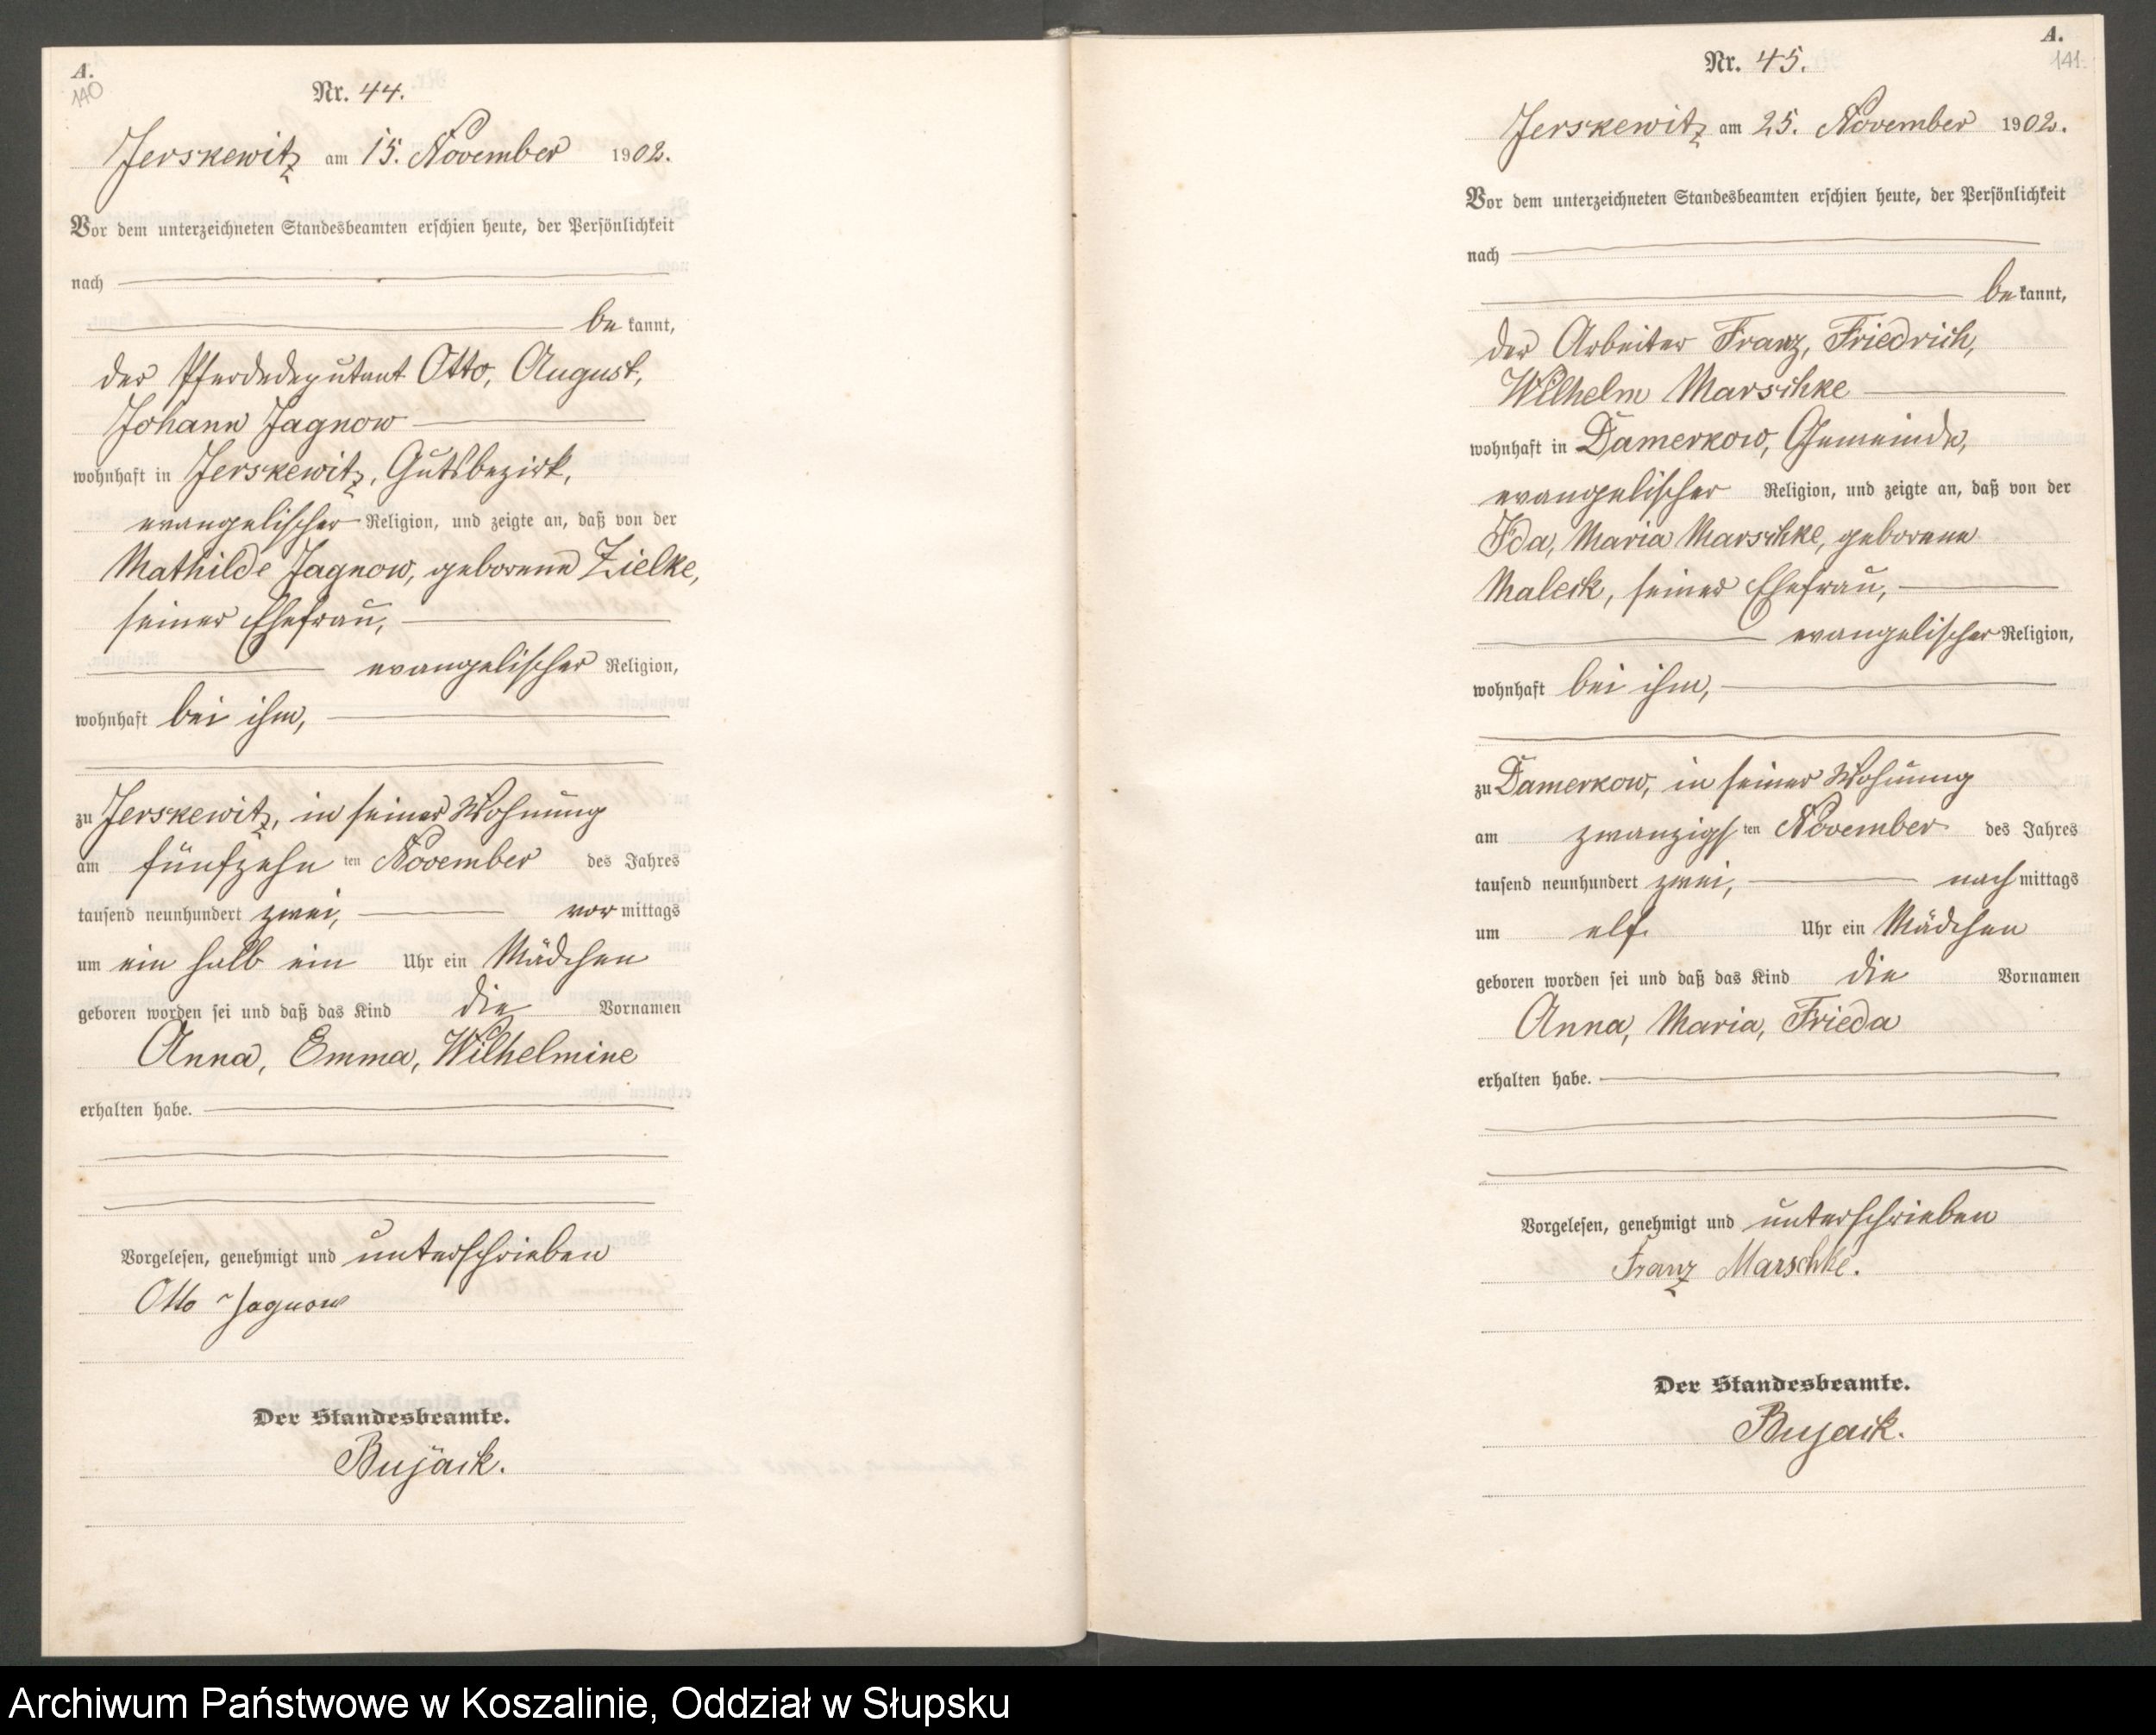 A.
140
Nr. 44.
Jerskewitz am 15. November 1902.
Vor dem unterzeichneten Standesbeamten erschien heute, der Persönlichkeit
nach
be kannt,
der Pferdedeputant Otto, August,
Johann Jagnow
wohnhaft in Jerskewitz, Gutsbezirk,
evangelischer Religion, und zeigte an, daß von der
Mathilde Jagnow, geborene Zielke,
seiner Ehefrau,
evangelischer Religion,
wohnhaft bei ihm,
zu Jerskewitz, in seiner Wohnung
am fünfzehn ten November des Jahres
tausend neunhundert zwei, vor mittags
um ein halb ein Uhr ein Mädchen
geboren worden sei und daß das Kind die Vornamen
Anna, Emma, Wilhelmine
erhalten habe.
Vorgelesen, genehmigt und unterschrieben
Otto Jagnow
Der Standesbeamte.
Bujack.
A.
141
Nr. 45.
Jerskewitz am 25. November 1902.
Vor dem unterzeichneten Standesbeamten erschien heute, der Persönlichkeit
nach
be kannt,
der Arbeiter Franz, Friedrich,
Wilhelm Marschke
wohnhaft in Damerkow, Gemeinde,
evangelischer Religion, und zeigte an, daß von der
Ida, Maria Marschke, geborene
Maleck, seiner Ehefrau,
evangelischer Religion,
wohnhaft bei ihm,
zu Damerkow, in seiner Wohnung
am zwanzigs ten November des Jahres
tausend neunhundert zwei, nach mittags
um elf Uhr ein Mädchen
geboren worden sei und daß das Kind die Vornamen
Anna, Maria, Frieda
erhalten habe.
Vorgelesen, genehmigt und unterschrieben
Franz Marschke.
Der Standesbeamte.
Bujack.
Archiwum Państwowe w Koszalinie, Oddział w Słupsku